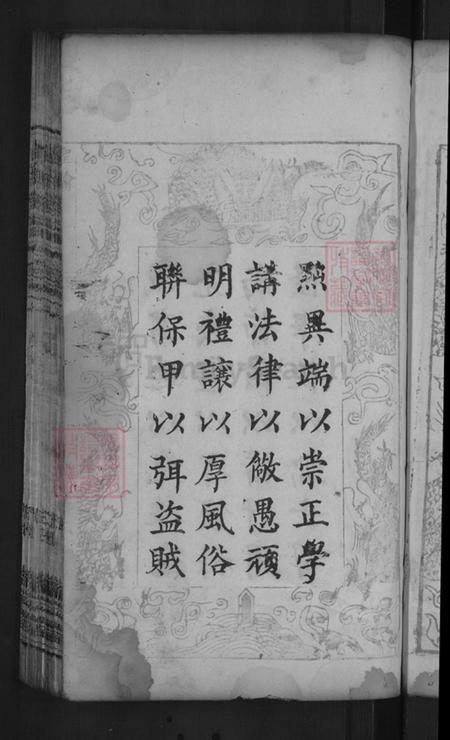 㸃異端以崇正學
講法律以儆愚頑
明禮讓以厚風俗
聯保甲以弭盗賊
FamilySearch